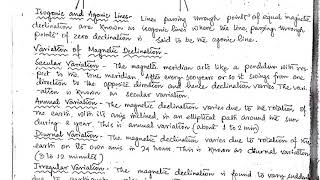 Isogonic and Agonic Lines- Lines passing through points of equal magnetic
declination are known as isogonic lines where the line passing through
points of zero declination is said to be an agonic line.
Variation of Magnetic Declination-
Secular Variation - The magnetic meridian acts like a pendulum with res
pect to the true meridian. After every 300 years or so it swings from one
direction to the opposite direction and hence declination varies. The vari
ation is known as secular variation.
Annual Variation - The magnetic declination varies due to the rotation of
the earth, with its axis inclined, in an elliptical path around the sun
during a year. This is annual variation (about 1 to 2 min)
Diurnal Variation - The magnetic declination varies due to rotation of the
earth on its own axis in 24 hours. This is known as diurnal variation
(3 to 12 minutes)
Irregular Variation - The magnetic declination is found to vary suddenly